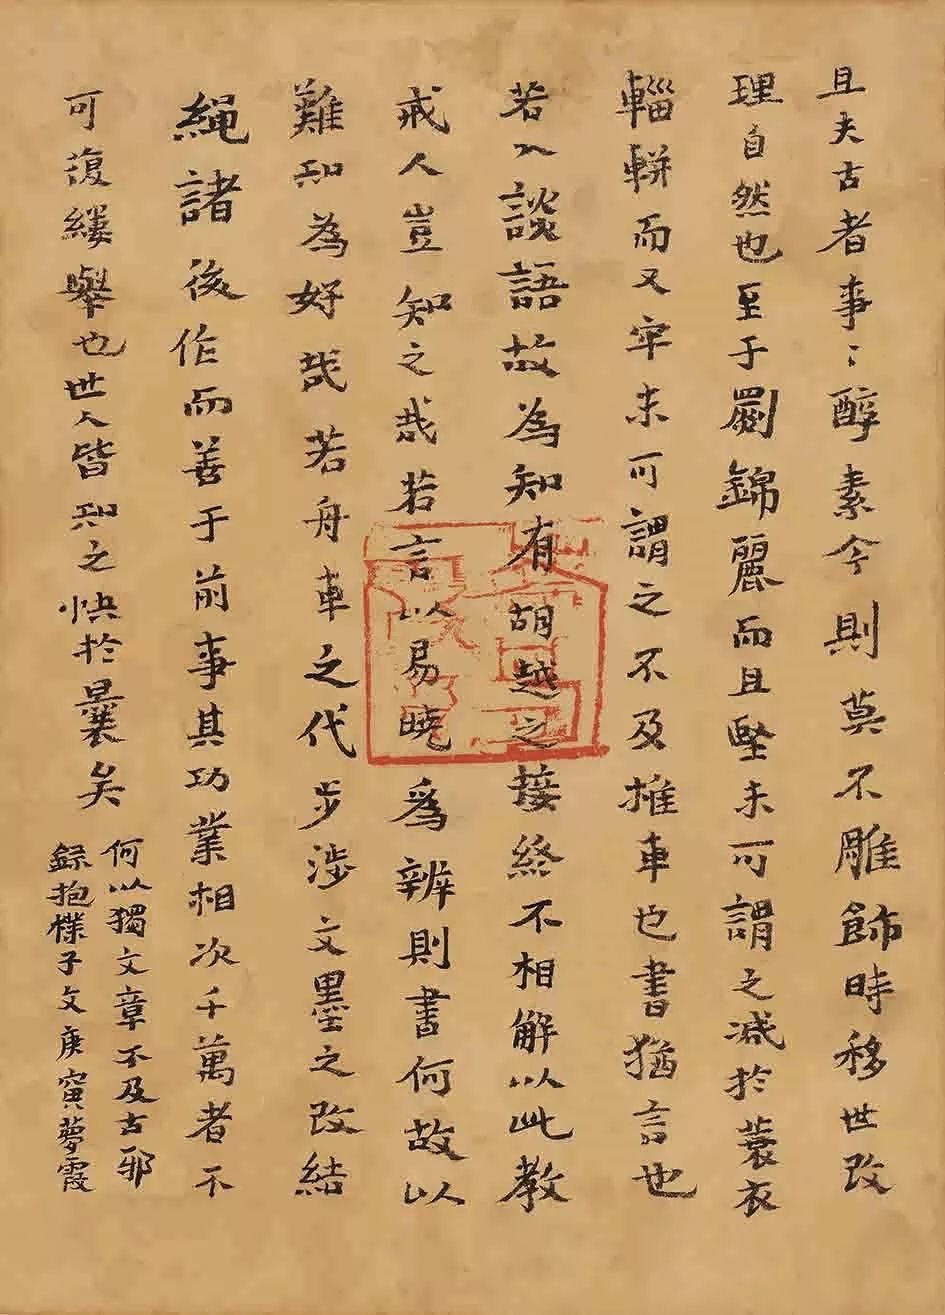 且夫古者事〻醇素今則莫不雕飾時移世改
理自然也至于罽錦麗而且堅未可謂之減於蓑衣
輜軿而又牢未可謂之不及推車也書猶言也
若入談語故為知有胡越之接終不相解以此教
戒人豈知之哉若言以易曉爲辨則書何故以
難知為好哉若舟車之代步涉文墨之改結
繩諸後作而善于前事其功業相次千萬者不
可復縷舉也世人皆知之快於曩矣
何以獨文章不及古邪
錄抱樸子文庚寅夢霞